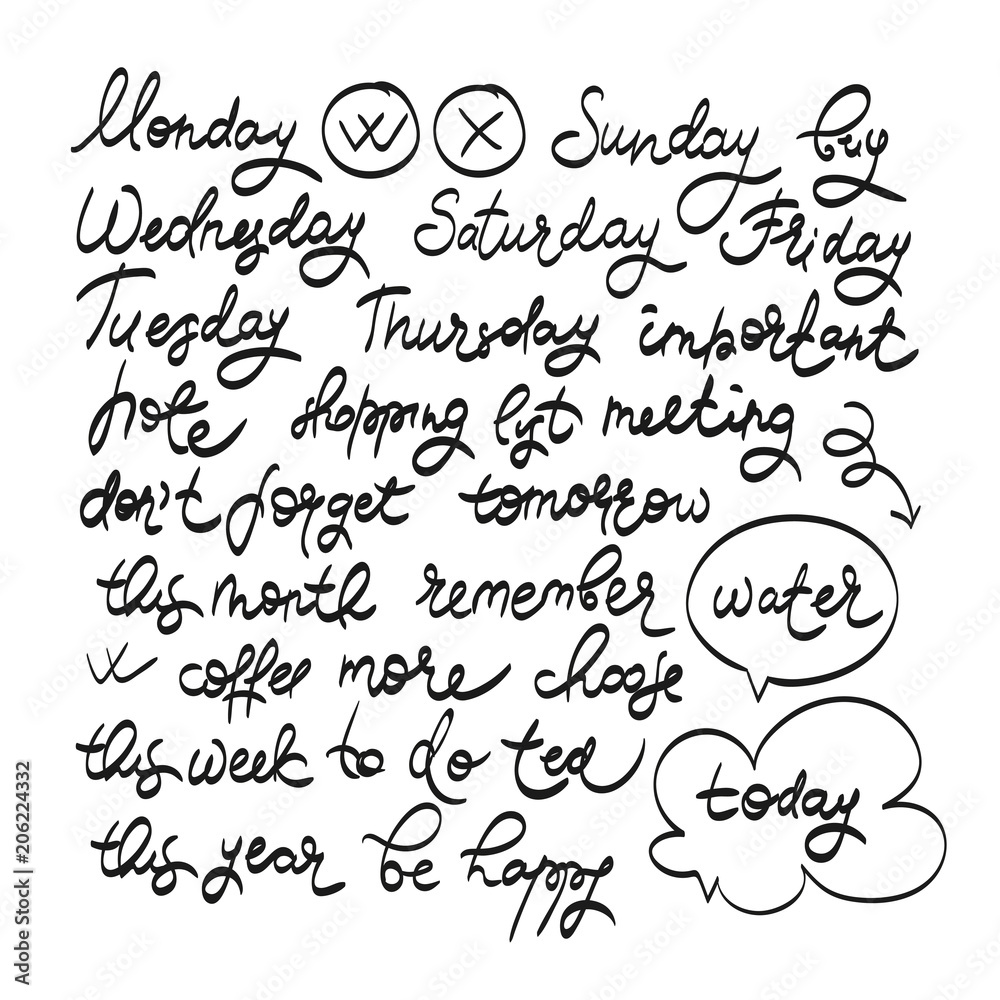 Monday W X Sunday buy
Wednesday Saturday Friday
Tuesday Thursday important
note shopping lyst meeting
don't forget tomorrow
this month remember water
W coffee more choose
this week to do tea
today
this year be happy
Adobe Stock | #206224332